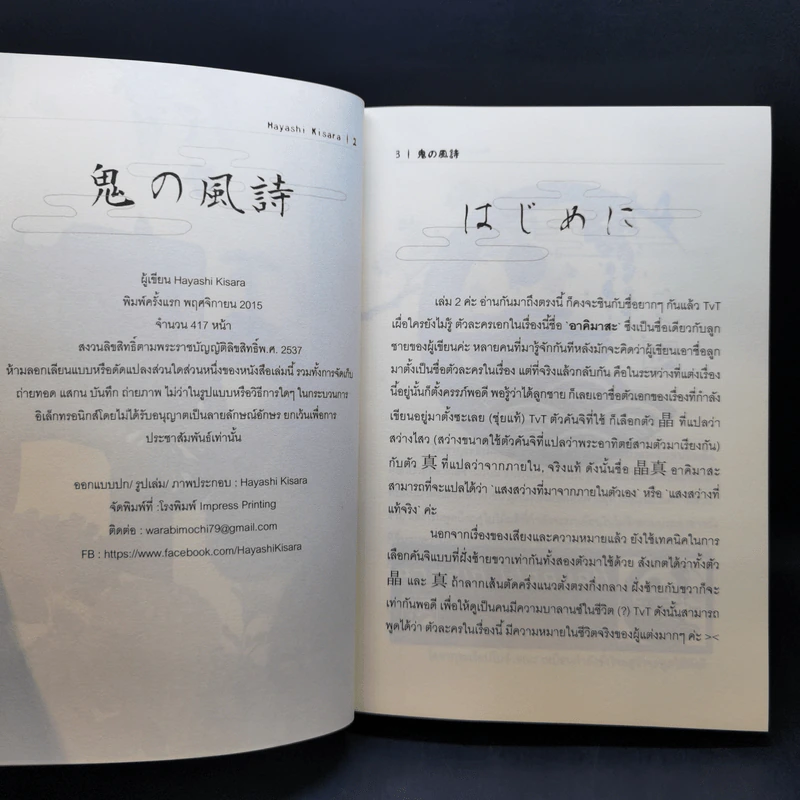 Hayashi Kisara | 2
鬼の風詩
ผู้เขียน Hayashi Kisara
พิมพ์ครั้งแรก พฤศจิกายน 2015
จำนวน 417 หน้า
สงวนลิขสิทธิ์ตามพระราชบัญญัติลิขสิทธิ์พ.ศ. 2537
ห้ามลอกเลียนแบบหรือคัดแปลงส่วนใดส่วนหนึ่งของหนังสือเล่มนี้ รวมทั้งการจัดเก็บ
ถ่ายทอด แสกน บันทึก ถ่ายภาพ ไม่ว่าในรูปแบบหรือวิธีการใดๆ ในกระบวนการ
อิเล็กทรอนิกส์โดยไม่ได้รับอนุญาตเป็นลายลักษณ์อักษร ยกเว้นเพื่อการ
ประชาสัมพันธ์เท่านั้น
ออกแบบปก/ รูปเล่ม/ ภาพประกอบ : Hayashi Kisara
จัดพิมพ์ที่ :โรงพิมพ์ Impress Printing
ติดต่อ : warabimochi79@gmail.com
FB : https://www.facebook.com/HayashiKisara
3 | 鬼の風詩
はじめに
เล่ม 2 ค่ะ อ่านกันมาถึงตรงนี้ ก็คงจะชินกับชื่อยากๆ กันแล้ว TvT
เผื่อใครยังไม่รู้ ตัวละครเอกในเรื่องนี้ชื่อ 'อาคิมาสะ' ซึ่งเป็นชื่อเดียวกับลูก
ชายของผู้เขียนค่ะ หลายคนที่มารู้จักกันทีหลังมักจะคิดว่าผู้เขียนเอาชื่อลูก
มาตั้งเป็นชื่อตัวละครในเรื่อง แต่ที่จริงแล้วกลับกัน คือในระหว่างที่แต่งเรื่อง
นี้อยู่นั้นก็ตั้งครรภ์พอดี พอรู้ว่าได้ลูกชาย ก็เลยเอาชื่อตัวเอกของเรื่องที่กำลัง
เขียนอยู่มาตั้งซะเลย (ซุ่ยแท้) TvT ตัวคันจิที่ใช้ ก็เลือกตัว 晶 ที่แปลว่า
สว่างไสว (สว่างขนาดใช้ตัวคันจิที่แปลว่าพระอาทิตย์สามตัวมาเรียงกัน)
กับตัว 真 ที่แปลว่าจากภายใน, จริงแท้ ดังนั้นชื่อ 晶真 อาคิมาสะ
สามารถที่จะแปลได้ว่า 'แสงสว่างที่มาจากภายในตัวเอง' หรือ 'แสงสว่างที่
แท้จริง' ค่ะ
นอกจากเรื่องของเสียงและความหมายแล้ว ยังใช้เทคนิคในการ
เลือกคันจิแบบที่ฝั่งซ้ายขวาเท่ากันทั้งสองตัวมาใช้ด้วย สังเกตได้ว่าทั้งตัว
晶 และ 真 ถ้าลากเส้นตัดครึ่งแนวตั้งตรงกึ่งกลาง ฝั่งซ้ายกับขวาก็จะ
เท่ากันพอดี เพื่อให้ดูเป็นคนมีความบาลานซ์ในชีวิต (?) TvT ดังนั้นสามารถ
พูดได้ว่า ตัวละครในเรื่องนี้ มีความหมายในชีวิตจริงของผู้แต่งมากๆ ค่ะ ><